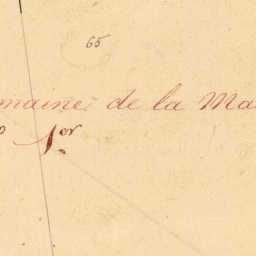 65
maine de la Ma
1er